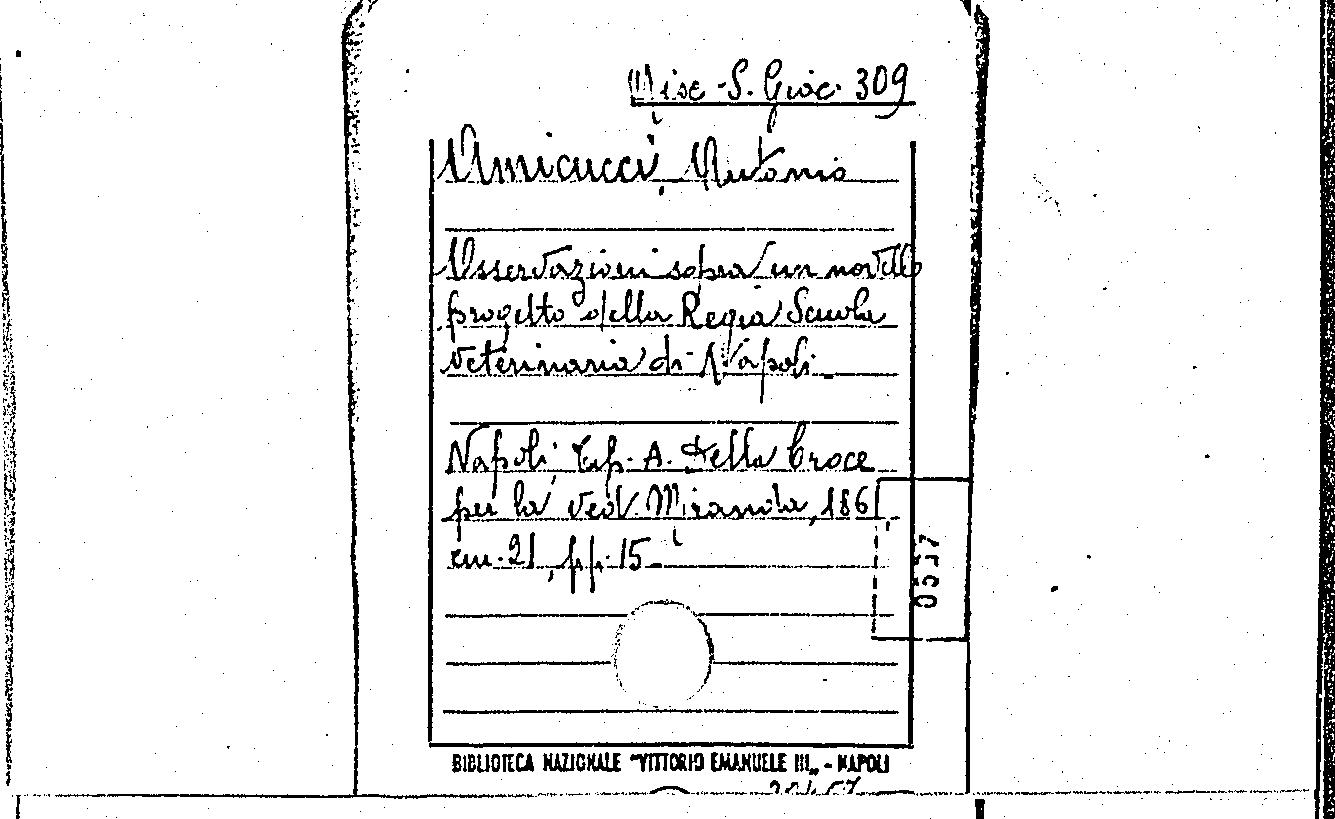 Misc. S. Giac. 309
Amicucci, Antonio
Osservazioni sopra un novello
progetto della Regia Scuola
veterinaria di Napoli.
Napoli, Tip. A. Della Croce
per la ved. Miranda, 1861,
cm. 21, pp. 15.
0557
BIBLIOTECA NAZIONALE "VITTORIO EMANUELE III" - NAPOLI